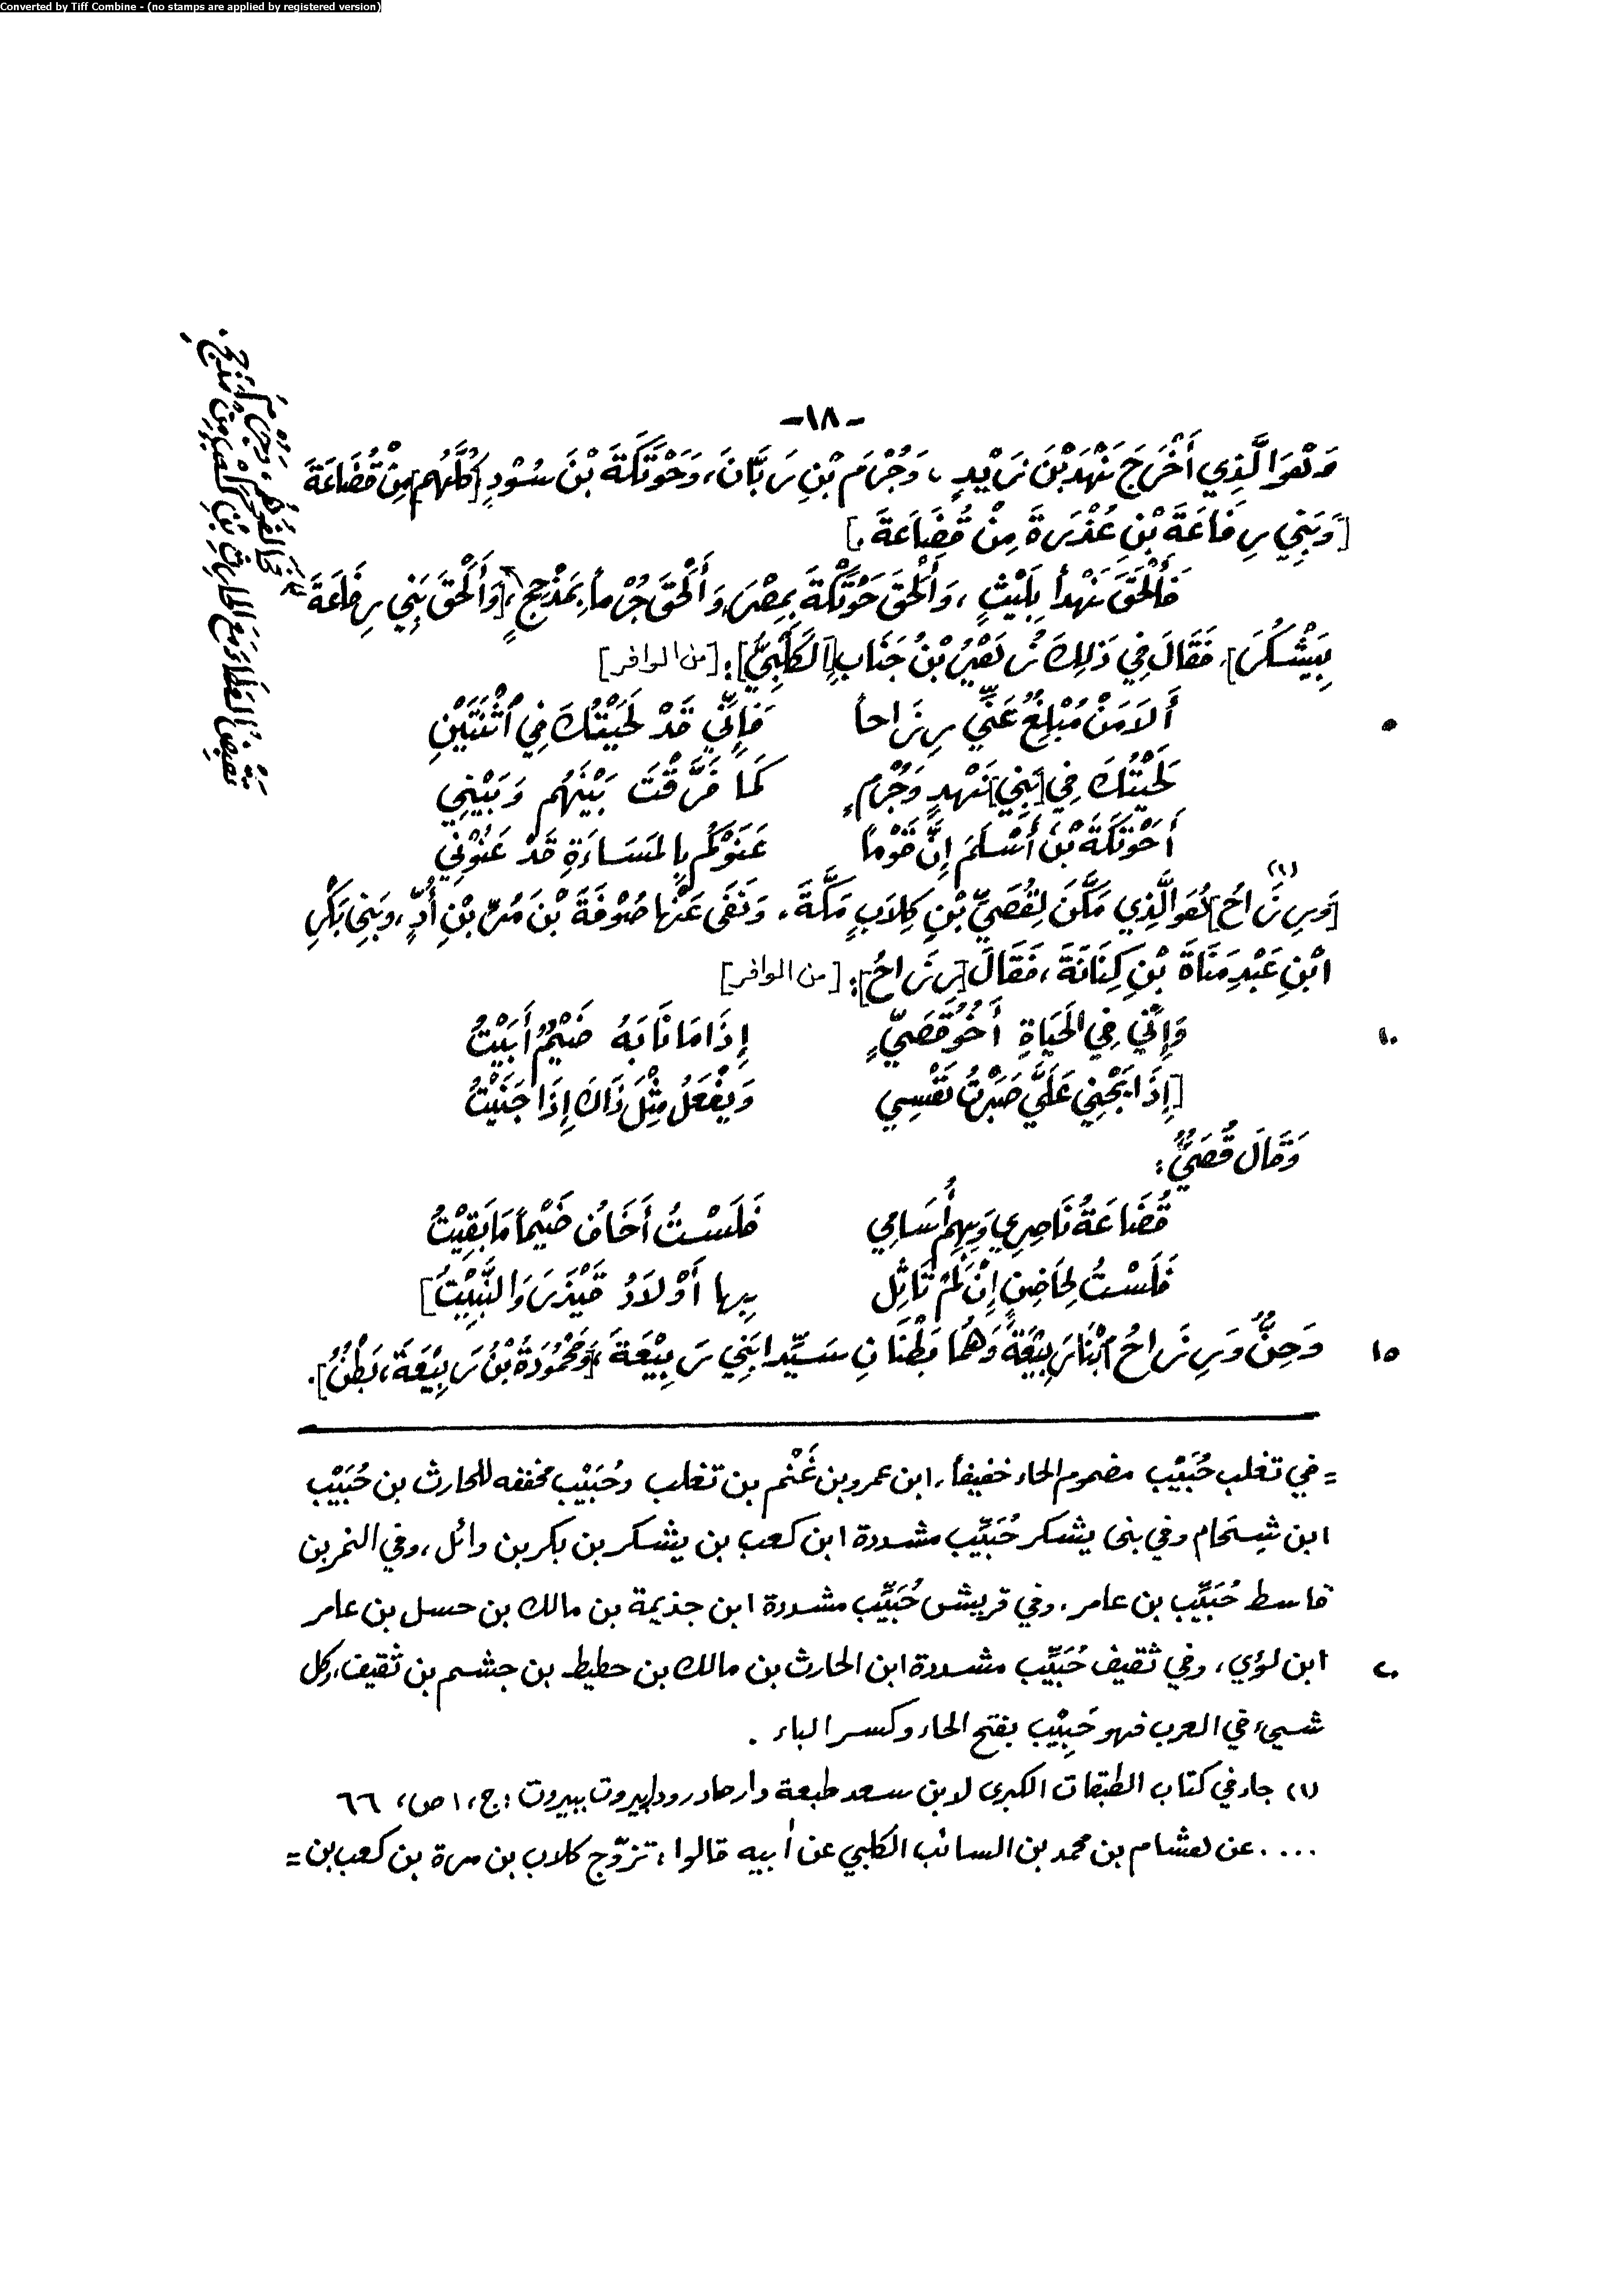 Converted by Tiff Combine - (no stamps are applied by registered version)
-١٨-
وَهُوَ الَّذِي أَخْرَجَ نَهْدَ بْنَ زَيْدٍ ، وَجُرْمَ بْنِ رَبَّانَ، وَحَوْتَكَةَ بْنَ سُوْدٍ [كُلَّهُم] مِنْ قُضَاعَةَ
[وَبَنِي رِفَاعَةَ بْنِ عُذْرَةَ مِنْ قُضَاعَةَ.]
فَأَلْحَقَ نَهْداً بِلَيْثٍ ، وَأَلْحَقَ حَوْتَكَةَ بِمِصْرَ، وَأَلْحَقَ جُرْماً بِمَذْحِجٍ، [وَأَلْحَقَ بَنِي رِفَاعَةَ
بِيَشْكُرَ]، فَقَالَ فِي ذَلِكَ زُهَيْرُ بْنُ جَنَابٍ [الكَلْبِيُّ]: [من الوافر]
أَلاَ مَنْ مُبْلِغٌ عَنِّي رِزَاحاً فَإِنِّي قَدْ لَحَيْتُكَ فِي اثْنَتَيْنِ
٥
لَحَيْتُكَ فِي [بَنِي] نَهْدٍ وَجُرْمٍ كَمَا فَرَّقْتَ بَيْنَهُم وَبَيْنِي
أَحَوْتَكَةَ بْنَ أَسْلَمَ إِنَّ قَوْماً عَنَوْكُم بِالمَسَاءَةِ قَدْ عَنُوْنِي
[وَرِزَاحُ](١) هُوَ الَّذِي مَكَّنَ لِقُصَيِّ بْنِ كِلاَبٍ مَكَّةَ، وَنَفَى عَنْهَا صُوْفَةَ بْنَ مُرِّ بْنِ أُدٍّ، وَبَنِي بَكْرِ
ابْنِ عَبْدِ مَنَاةَ بْنِ كِنَانَةَ، فَقَالَ [رِزَاحُ]: [من الوافر]
وَإِنِّي فِي الحَيَاةِ أَخُو قُصَيٍّ إِذَا مَا نَابَهُ ضَيْمٌ أَبَيْتُ
١٠
[إِذَا يَجْنِي عَلَيَّ صَبَرْتُ نَفْسِي وَيَفْعَلُ مِثْلَ ذَاكَ إِذَا جَنَيْتُ
وَقَالَ قُصَيٌّ:
قُضَاعَةُ نَاصِرِي وَبِهِم أُسَامِي فَلَسْتُ أَخَافُ ضَيْماً مَا بَقِيْتُ
فَلَسْتُ لِحَاضِنٍ إِنْ لَمْ تَاثِل بِهَا أَوْلاَدُ قَيْذَرَ وَالنَّبِيْتُ]
وَحِنٌّ وَرِزَاحُ ابْنَا رَبِيْعَةَ وَهُمَا بَطْنَانِ سَيِّدا بَنِي رَبِيْعَةَ، [وَمَحْمُودَةُ بْنُ رَبِيْعَةَ، بَطْنٌ].
١٥
= في تغلب حُبَيْب مضموم الحاء خفيفاً، ابن عمرو بن غَنْم بن تغلب وحُبَيْب مخففه للحارث بن حُبَيْب
ابن شِحَام وفي بني يشكر حُبَيِّب مشددة ابن كعب بن يشكر بن بكر بن وائل، وفي النمر بن
قاسط حُبَيِّب بن عامر، وفي قريش حُبَيِّب مشددة ابن جذيمة بن مالك بن حسل بن عامر
ابن لؤي، وفي ثقيف حُبَيِّب مشددة ابن الحارث بن مالك بن حطيط بن جشم بن ثقيف، وكل
٢٠
شيء في العرب فهو حَبِيْب بفتح الحاء وكسر الباء .
(١) جاء في كتاب الطبقات الكبرى لابن سعد طبعة دار صادر ودار بيروت ببيروت : ج، ١ ص، ٦٦
.... عن هشام بن محمد بن السائب الكلبي عن أبيه قالوا: تزوّج كلاب بن مرة بن كعب بن =